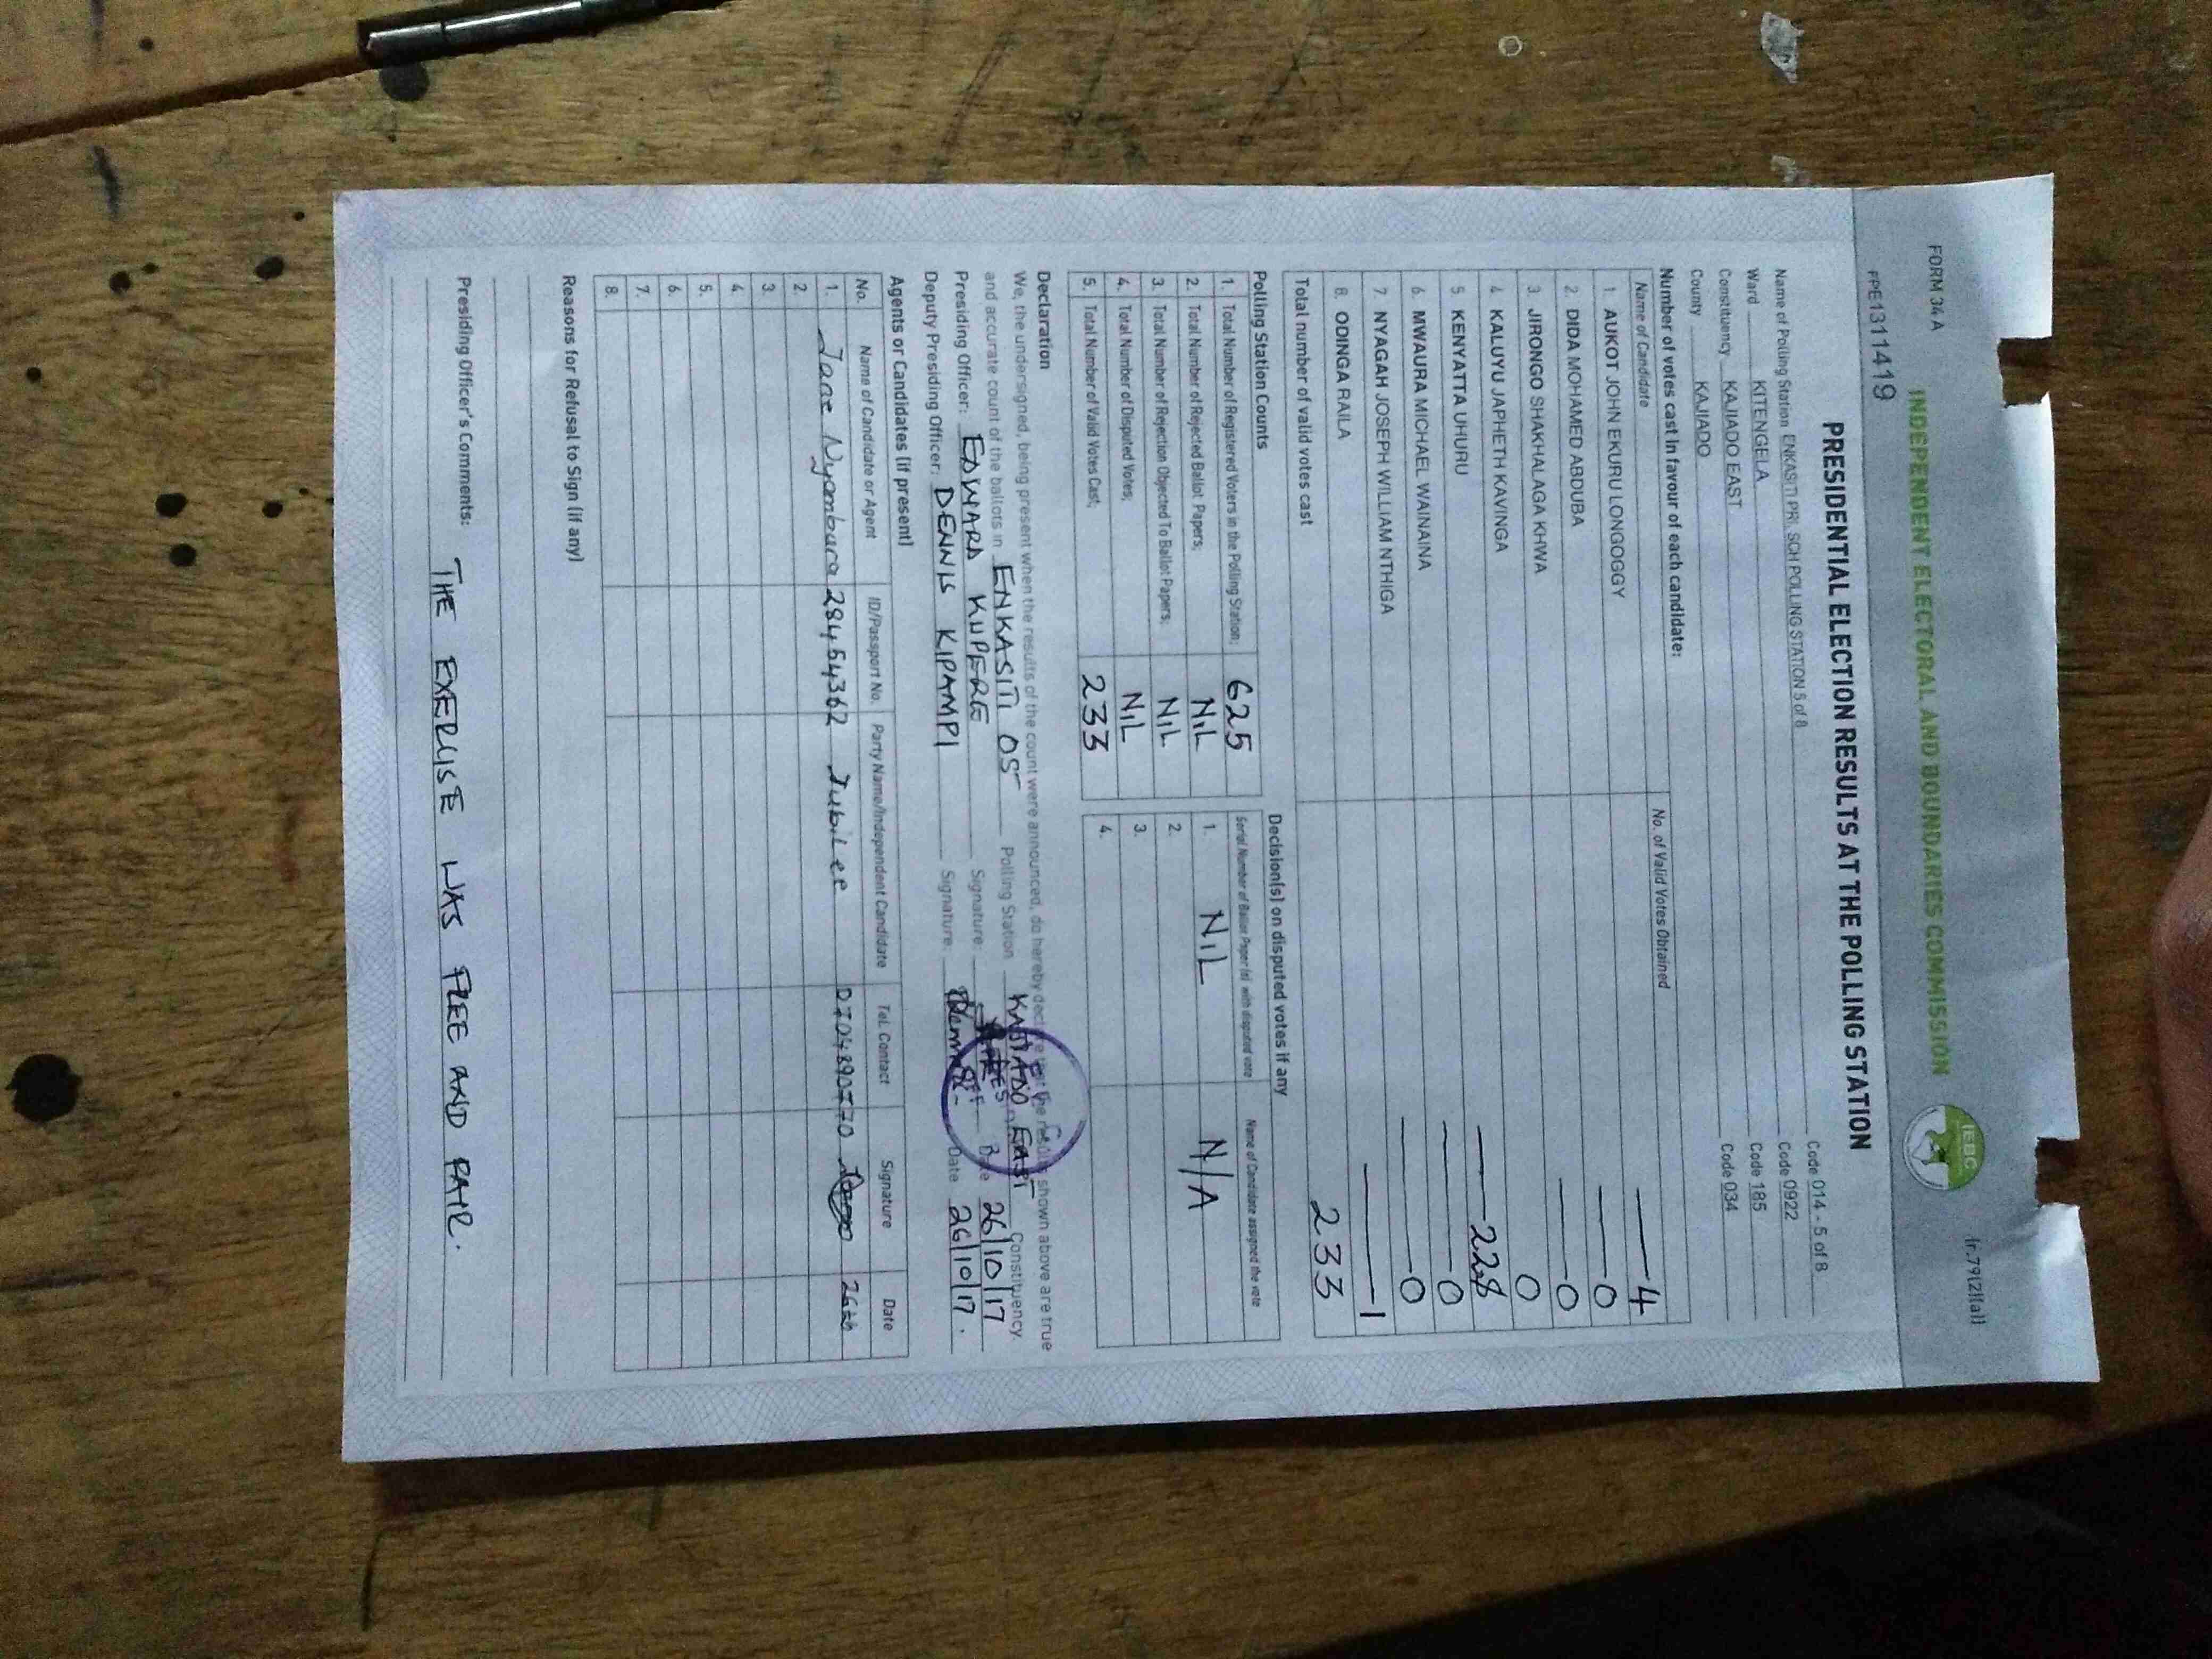 FORM 34 A
(r.79(2)(a))
INDEPENDENT ELECTORAL AND BOUNDARIES COMMISSION
IEBC
PPE1311419
PRESIDENTIAL ELECTION RESULTS AT THE POLLING STATION
Name of Polling Station ENKASITI PRI. SCH POLLING STATION 5 of 8 Code 014 - 5 of 8
Ward KITENGELA Code 0922
Constituency KAJIADO EAST Code 185
County KAJIADO Code 034
Number of votes cast in favour of each candidate:
Name of Candidate No. of Valid Votes Obtained
1. AUKOT JOHN EKURU LONGOGGY 4
2. DIDA MOHAMED ABDUBA 0
3. JIRONGO SHAKHALAGA KHWA 0
4. KALUYU JAPHETH KAVINGA 0
5. KENYATTA UHURU 228
6. MWAURA MICHAEL WAINAINA 0
7. NYAGAH JOSEPH WILLIAM NTHIGA 0
8. ODINGA RAILA 1
Total number of valid votes cast 233
Polling Station Counts
1. Total Number of Registered Voters in the Polling Station; 625
2. Total Number of Rejected Ballot Papers; NIL
3. Total Number of Rejection Objected To Ballot Papers; NIL
4. Total Number of Disputed Votes; NIL
5. Total Number of Valid Votes Cast; 233
Decision(s) on disputed votes if any
Serial Number of Ballot Paper (s) with disputed vote Name of Candidate assigned the vote
1. NIL N/A
2.
3.
4.
Declaration
We, the undersigned, being present when the results of the count were announced, do hereby declare that the results shown above are true
and accurate count of the ballots in ENKASITI 05 Polling Station KAJIADO EAST Constituency.
Presiding Officer: EDWARD KUPERE Signature: Date 26/10/17
Deputy Presiding Officer: DENNIS KIPAMPI Signature. Date 26/10/17.
Agents or Candidates (if present)
No. Name of Candidate or Agent ID/Passport No. Party Name/Independent Candidate Tel. Contact Signature Date
1. Jane Nyambura 28464362 Jubilee 0704890770 26th
2.
3.
4.
5.
6.
7.
8.
Reasons for Refusal to Sign (if any)
Presiding Officer's Comments: THE EXERCISE WAS FREE AND FAIR.